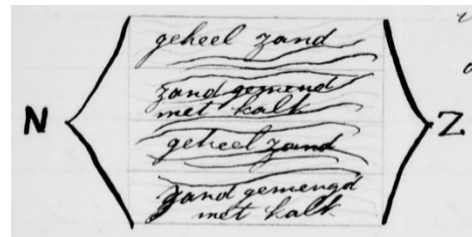 geheel zand
zand gemend
met kalk
N
Z
geheel zand
zand gemengd
met kalk